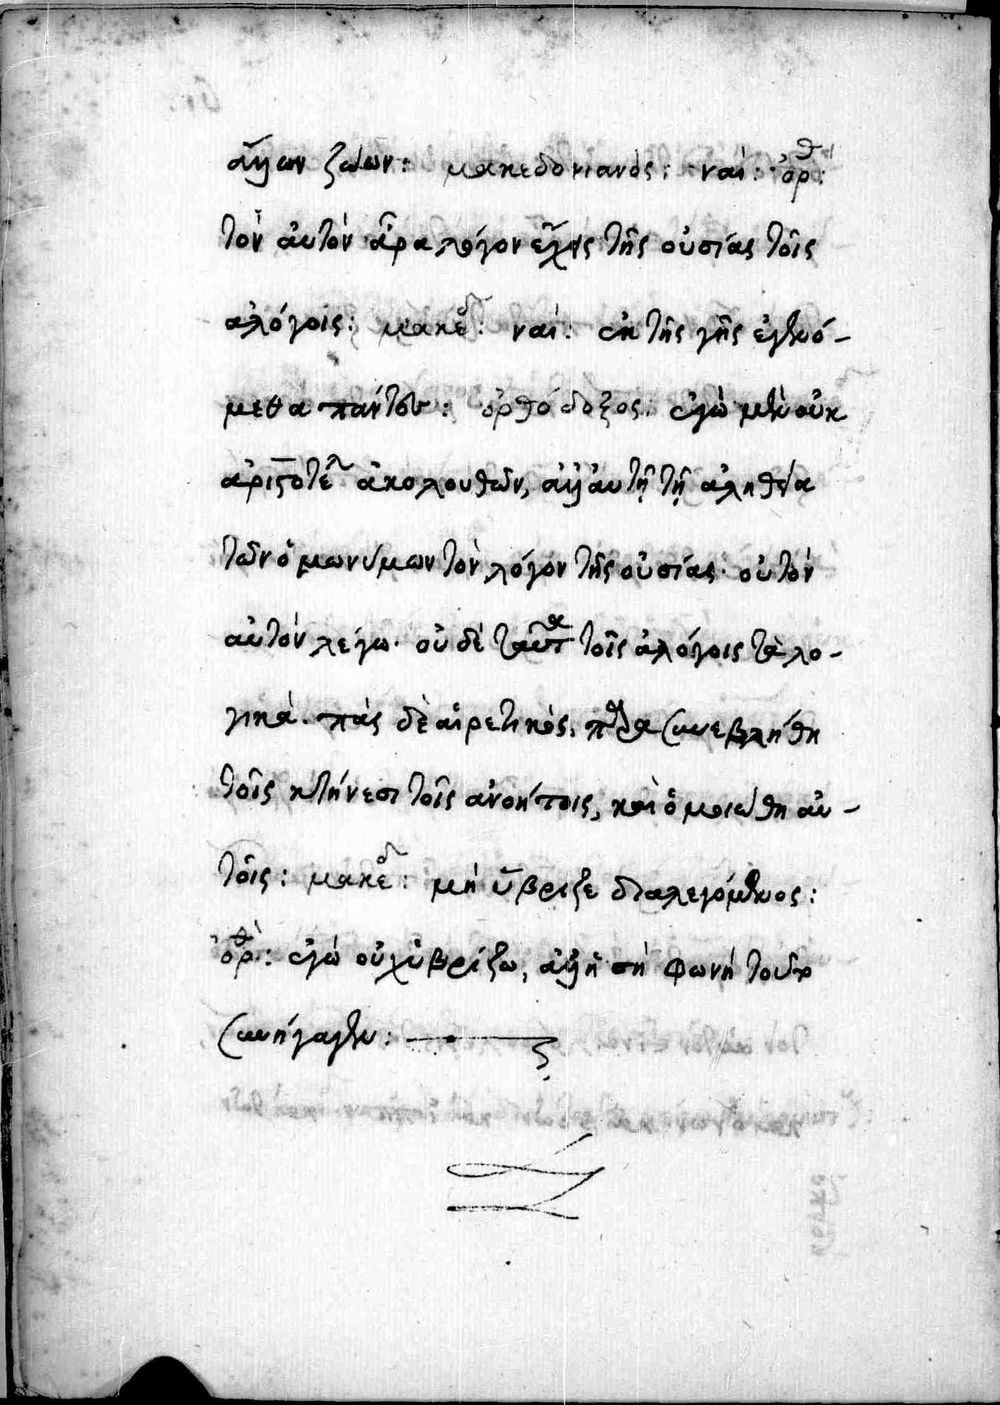 ἄλλων ζώων: μακεδονιανός: ναί: ὀρθ:
τὸν αὐτὸν ἄρα λόγον ἔχεις τῆς οὐσίας τοῖς
ἀλόγοις: μακεδ: ναί: ἐκ τῆς γῆς ἐγενό-
μεθα πάντες: ὀρθόδοξος: ἐγὼ μὲν οὐκ
ἀριστοτέλ ἀκολουθῶν, ἀλλ' αὐτῇ τῇ ἀληθείᾳ
τῶν ὁμωνύμων τὸν λόγον τῆς οὐσίας· οὐ τὸν
αὐτὸν λέγω· οὐδὲ ταῦτα τοῖς ἀλόγοις τὰ λο-
γικά. πᾶς δὲ αἱρετικὸς, συνεβλήθη
τοῖς κτήνεσι τοῖς ἀνοήτοις, καὶ ὁμοιώθη αὐ-
τοῖς: μακεδ: μὴ ὕβριζε διαλεγόμενος:
ὀρθ: ἐγὼ οὐχ ὑβρίζω, ἀλλ' ἡ σὴ φωνὴ τοῦτο
συνήγαγεν: